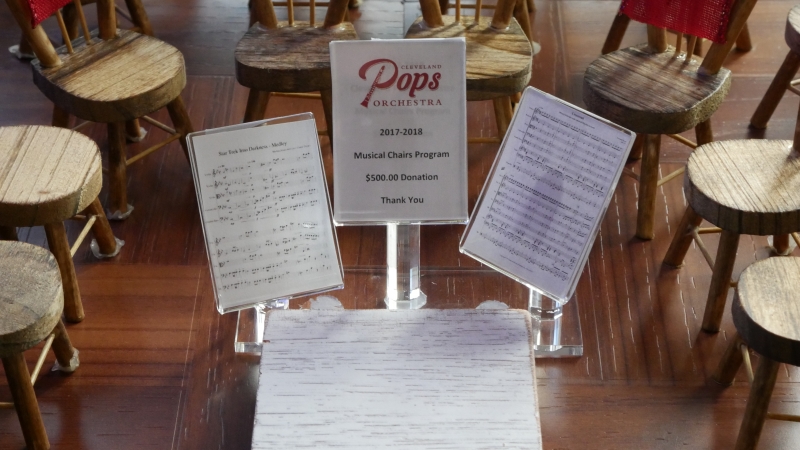 CLEVELAND
Pops
ORCHESTRA
2017-2018
Musical Chairs Program
$500.00 Donation
Thank You
Star Trek Into Darkness - Medley